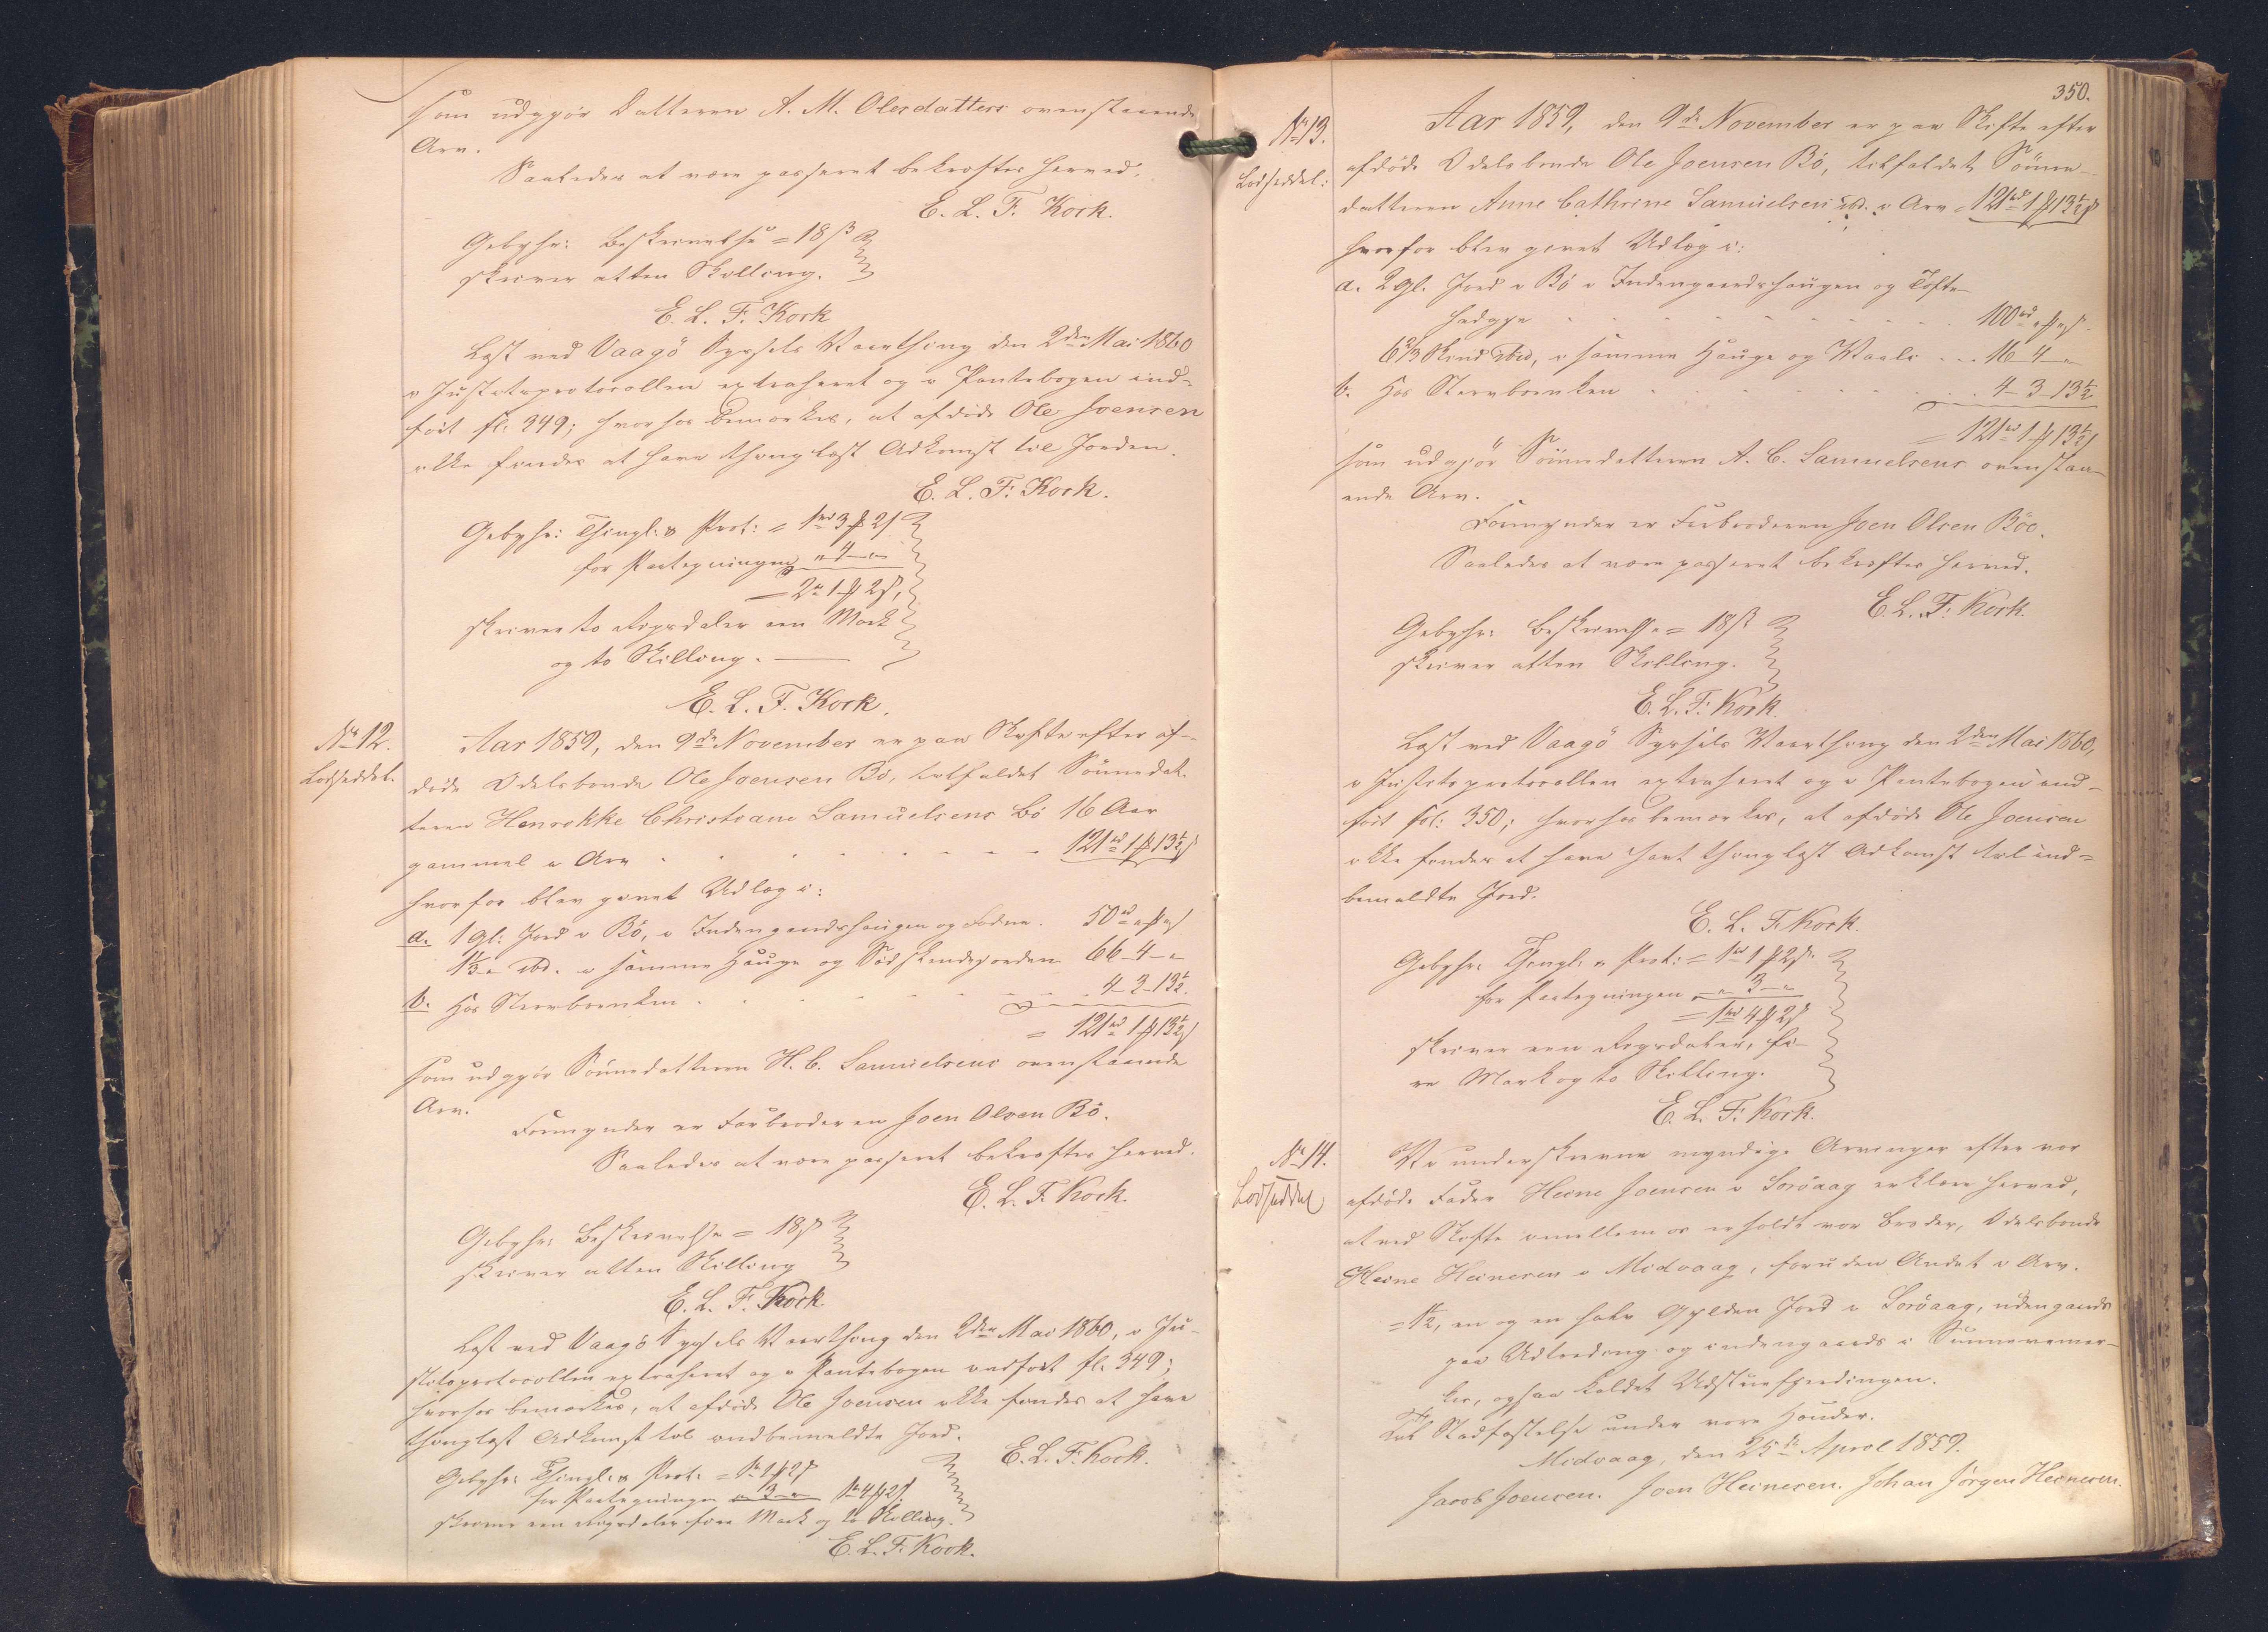 som udgjør Datteren A. M. Olesdatters ovenstaaende
Arv.
Saaledes at være passeret bekræftes herved.
E. L. F. Kock.
Gebyhr: Beskrivelse = 18 ß
skriver atten Skilling.
E. L. F. Kock
Læst ved Vaagö Syssels Vaarthing den 2den Mai 1860
i Justitsprotocollen extraheret og i Pantebogen ind-
ført fl. 349; hvorhos bemærkes, at afdøde Ole Joensen
ikke findes at have thinglæst Adkomst til Jorden.
E. L. F. Kock.
Gebyhr: Thingl: & Prot: = 1rd 3 ℔ 2 ß
for Paategningen " 4 "
= 2rd 1 ℔ 2 ß,
skriver to Rigsdaler een Mark
og to Skilling.
E. L. F. Kock.
No 12.
Lodseddel.
Aar 1859, den 9de November er paa Skifte efter af-
døde Odelsbonde Ole Joensen Bö, tilfaldet Sönnedat-
teren Henrikke Christiane Samuelsens Bö 16 Aar
gammel i Arv 121rd 1 ℔ 13½ ß
hvorfor blev givet Udlæg i:
a. 1 Gl: Jord i Bö, i Indengaardshaugen og 50rd " ℔ " ß
1⅓ " ibd. i samme Hauge og Södskendejorden 66-4-"
b. Hos Stervboenken 4-3-13½
= 121rd 1 ℔ 13½ ß
som udgjør Sönnedatteren H. C. Samuelsens ovenstaaende
Arv.
Formynder er Farbroderen Joen Olsen Bö.
Saaledes at være passeret bekræftes herved.
E. L. F. Kock.
Gebyhr: Beskrivelse = 18 ß
skriver atten Skilling
E. L. F. Kock.
Læst ved Vaagö Syssels Vaarthing den 2den Mai 1860, i Ju-
stitsprotocollen extraheret og i Pantebogen indført fl. 349;
hvorhos bemærkes, at afdøde Ole Joensen ikke findes at have
thinglæst Adkomst til indbemeldte Jord.
E. L. F. Kock.
Gebyhr: Thingl: & Prot: = 1rd 1 ℔ 2 ß
for Paategningen " 3 " 1rd 4 ℔ 2 ß
skriver een Rigsdaler fire Mark og to Skilling.
E. L. F. Kock.
350.
No 13.
Lodseddel:
Aar 1859, den 9de November er paa Skifte efter
afdøde Odelsbonde Ole Joensen Bö, tilfaldet Sönne-
datteren Anne Cathrine Samuelsen ibd. i Arv 121rd 1 ℔ 13½ ß
hvorfor blev givet Udlæg i:
a. 2 Gl. Jord i Bö i Indengaardshaugen og Tofte
100rd " ℔ " ß.
6⅔ Skind ibid, i samme Hauge og 16-4-"
b. Hos Stervboenken 4-3-13½
= 121rd 1 ℔ 13½ ß
som udgjör Sönnedatteren A. C. Samuelsens ovenstaa-
ende Arv.
Formynder er Farbroderen Joen Olsen Böe.
Saaledes at være passeret bekræftes herved.
E. L. F. Kock.
Gebyhr: Beskrivelse = 18 ß
skriver atten Skilling.
E. L. F. Kock.
Læst ved Vaagö Syssels Vaarthing den 2den Mai 1860,
i Justitsprotocollen extraheret og i Pantebogen ind-
ført fol: 350; hvorhos bemærkes, at afdøde Ole Joensen
ikke findes at have havt thinglæst Adkomst til ind-
bemeldte Jord.
E. L. F. Kock.
Gebyhr: Thingl: & Prot: = 1rd 1 ℔ 2 ß.
for Paategningen " 3 "
= 1rd 4 ℔ 2 ß
skriver een Rigsdaler, fi-
re Mark og to Skilling.
E. L. F. Kock.
No 14.
Lodseddel
Vi underskrevne myndige Arvinger efter vor
afdøde Fader Heine Joensen i Sorövaag erklære herved,
at ved Skifte imellem os er holdt vor Broder, Odelsbonde
Heine Heinesen i Midvaag, foruden Andet i Arv.
= 1½, en og en halv Gylden Jord i Sorövaag, udengaards
paa Udlending og indengaards i
ogsaa kaldet
Til Stadfæstelse under vore Hænder.
Midvaag, den 25de April 1859.
Jacob Joensen. Joen Heinesen. Johan Jörgen Heinesen.